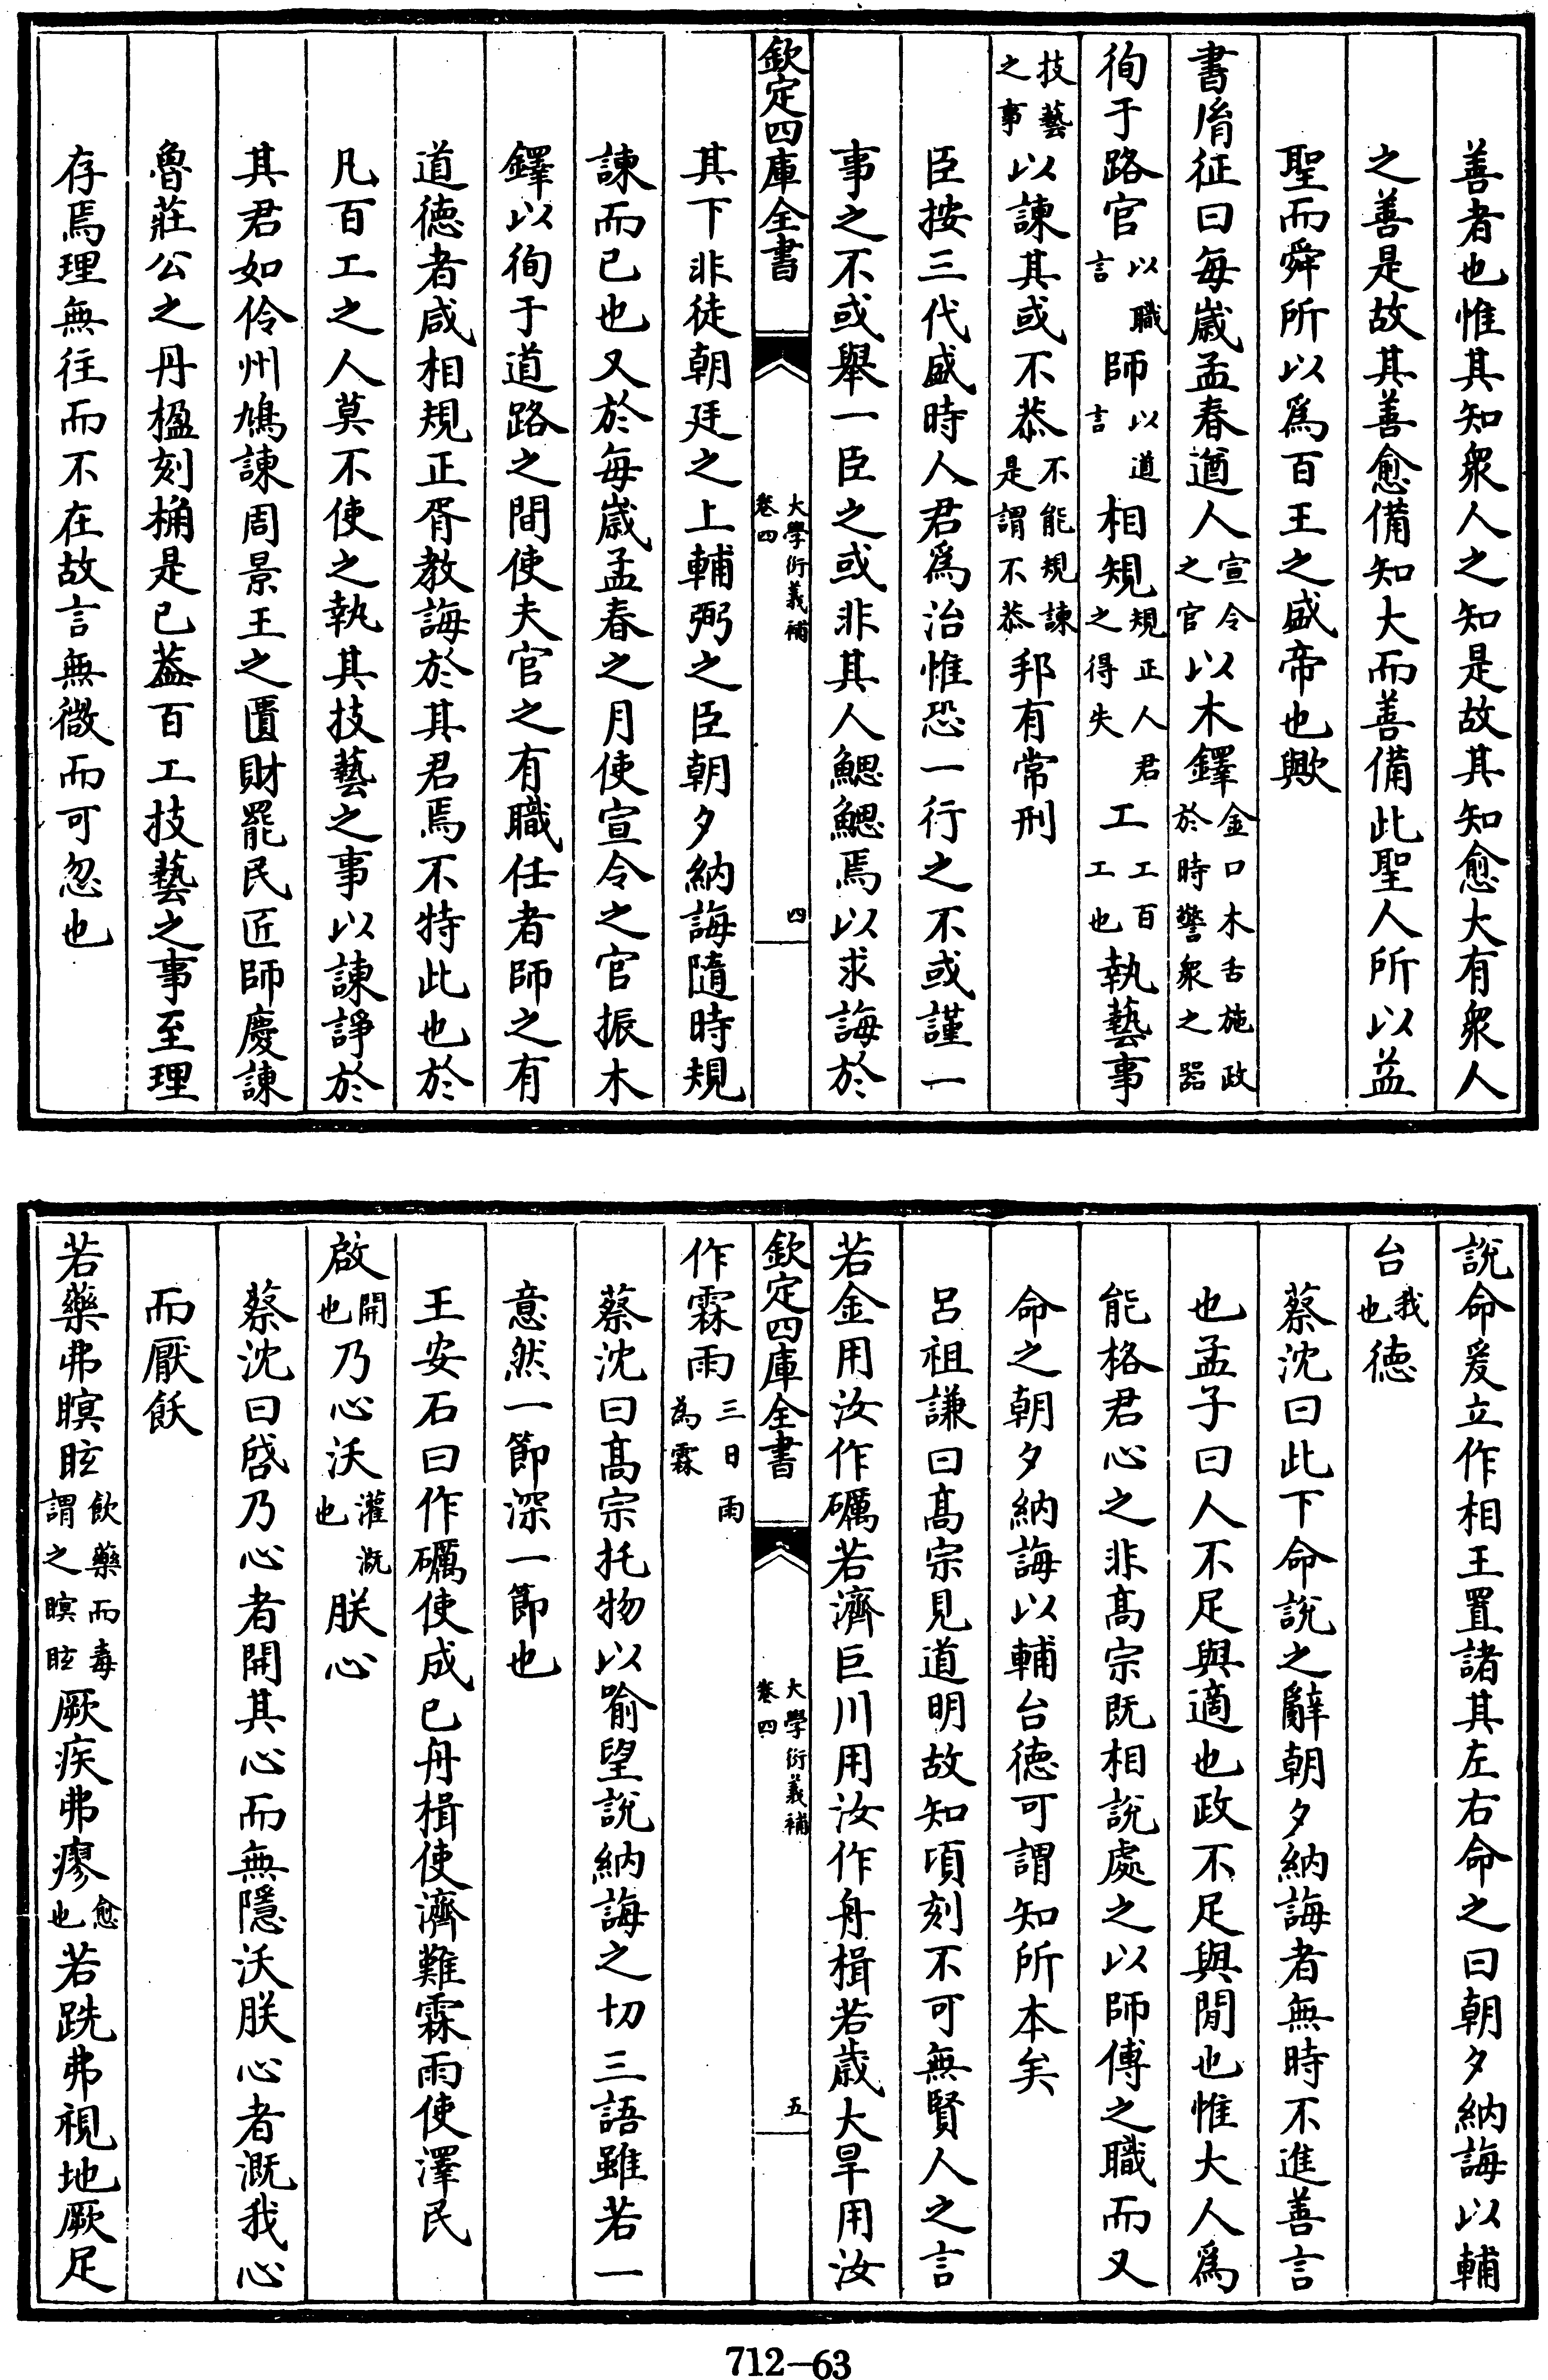 善者也惟其知衆人之知是故其知愈大有衆人
之善是故其善愈備知大而善備此聖人所以益
聖而舜所以爲百王之盛帝也歟
書胤征曰每歲孟春遒人宣令之官以木鐸金口木舌施政於時警衆之器
徇于路官以職言師以道言相規規正人君之得失工工百工也執藝事
技藝之事以諫其或不恭不能規諫是謂不恭邦有常刑
臣按三代盛時人君爲治惟恐一行之不或謹一
事之不或舉一臣之或非其人鰓鰓焉以求誨於
欽定四庫全書 大學衍義補 卷四 四
其下非徒朝廷之上輔弼之臣朝夕納誨隨時規
諫而已也又於每歲孟春之月使宣令之官振木
鐸以徇于道路之間使夫官之有職任者師之有
道德者咸相規正胥教誨於其君焉不特此也於
凡百工之人莫不使之執其技藝之事以諫諍於
其君如伶州鳩諫周景王之匱財罷民匠師慶諫
魯莊公之丹楹刻桷是已葢百工技藝之事至理
存焉理無往而不在故言無微而可忽也
說命爰立作相王置諸其左右命之曰朝夕納誨以輔
台我也德
蔡沈曰此下命說之辭朝夕納誨者無時不進善言
也孟子曰人不足與適也政不足與閒也惟大人爲
能格君心之非高宗既相說處之以師傅之職而又
命之朝夕納誨以輔台德可謂知所本矣
呂祖謙曰髙宗見道明故知頃刻不可無賢人之言
若金用汝作礪若濟巨川用汝作舟楫若歲大旱用汝
欽定四庫全書 大學衍義補 卷四 五
作霖雨三日雨為霖
蔡沈曰髙宗托物以喻望說納誨之切三語雖若一
意然一節深一節也
王安石曰作礪使成已舟楫使濟難霖雨使澤民
啟開也乃心沃灌溉也朕心
蔡沈曰啓乃心者開其心而無隱沃朕心者溉我心
而厭飫
若藥弗瞑眩飲藥而毒謂之瞑眩厥疾弗瘳愈也若跣弗視地厥足
712-63